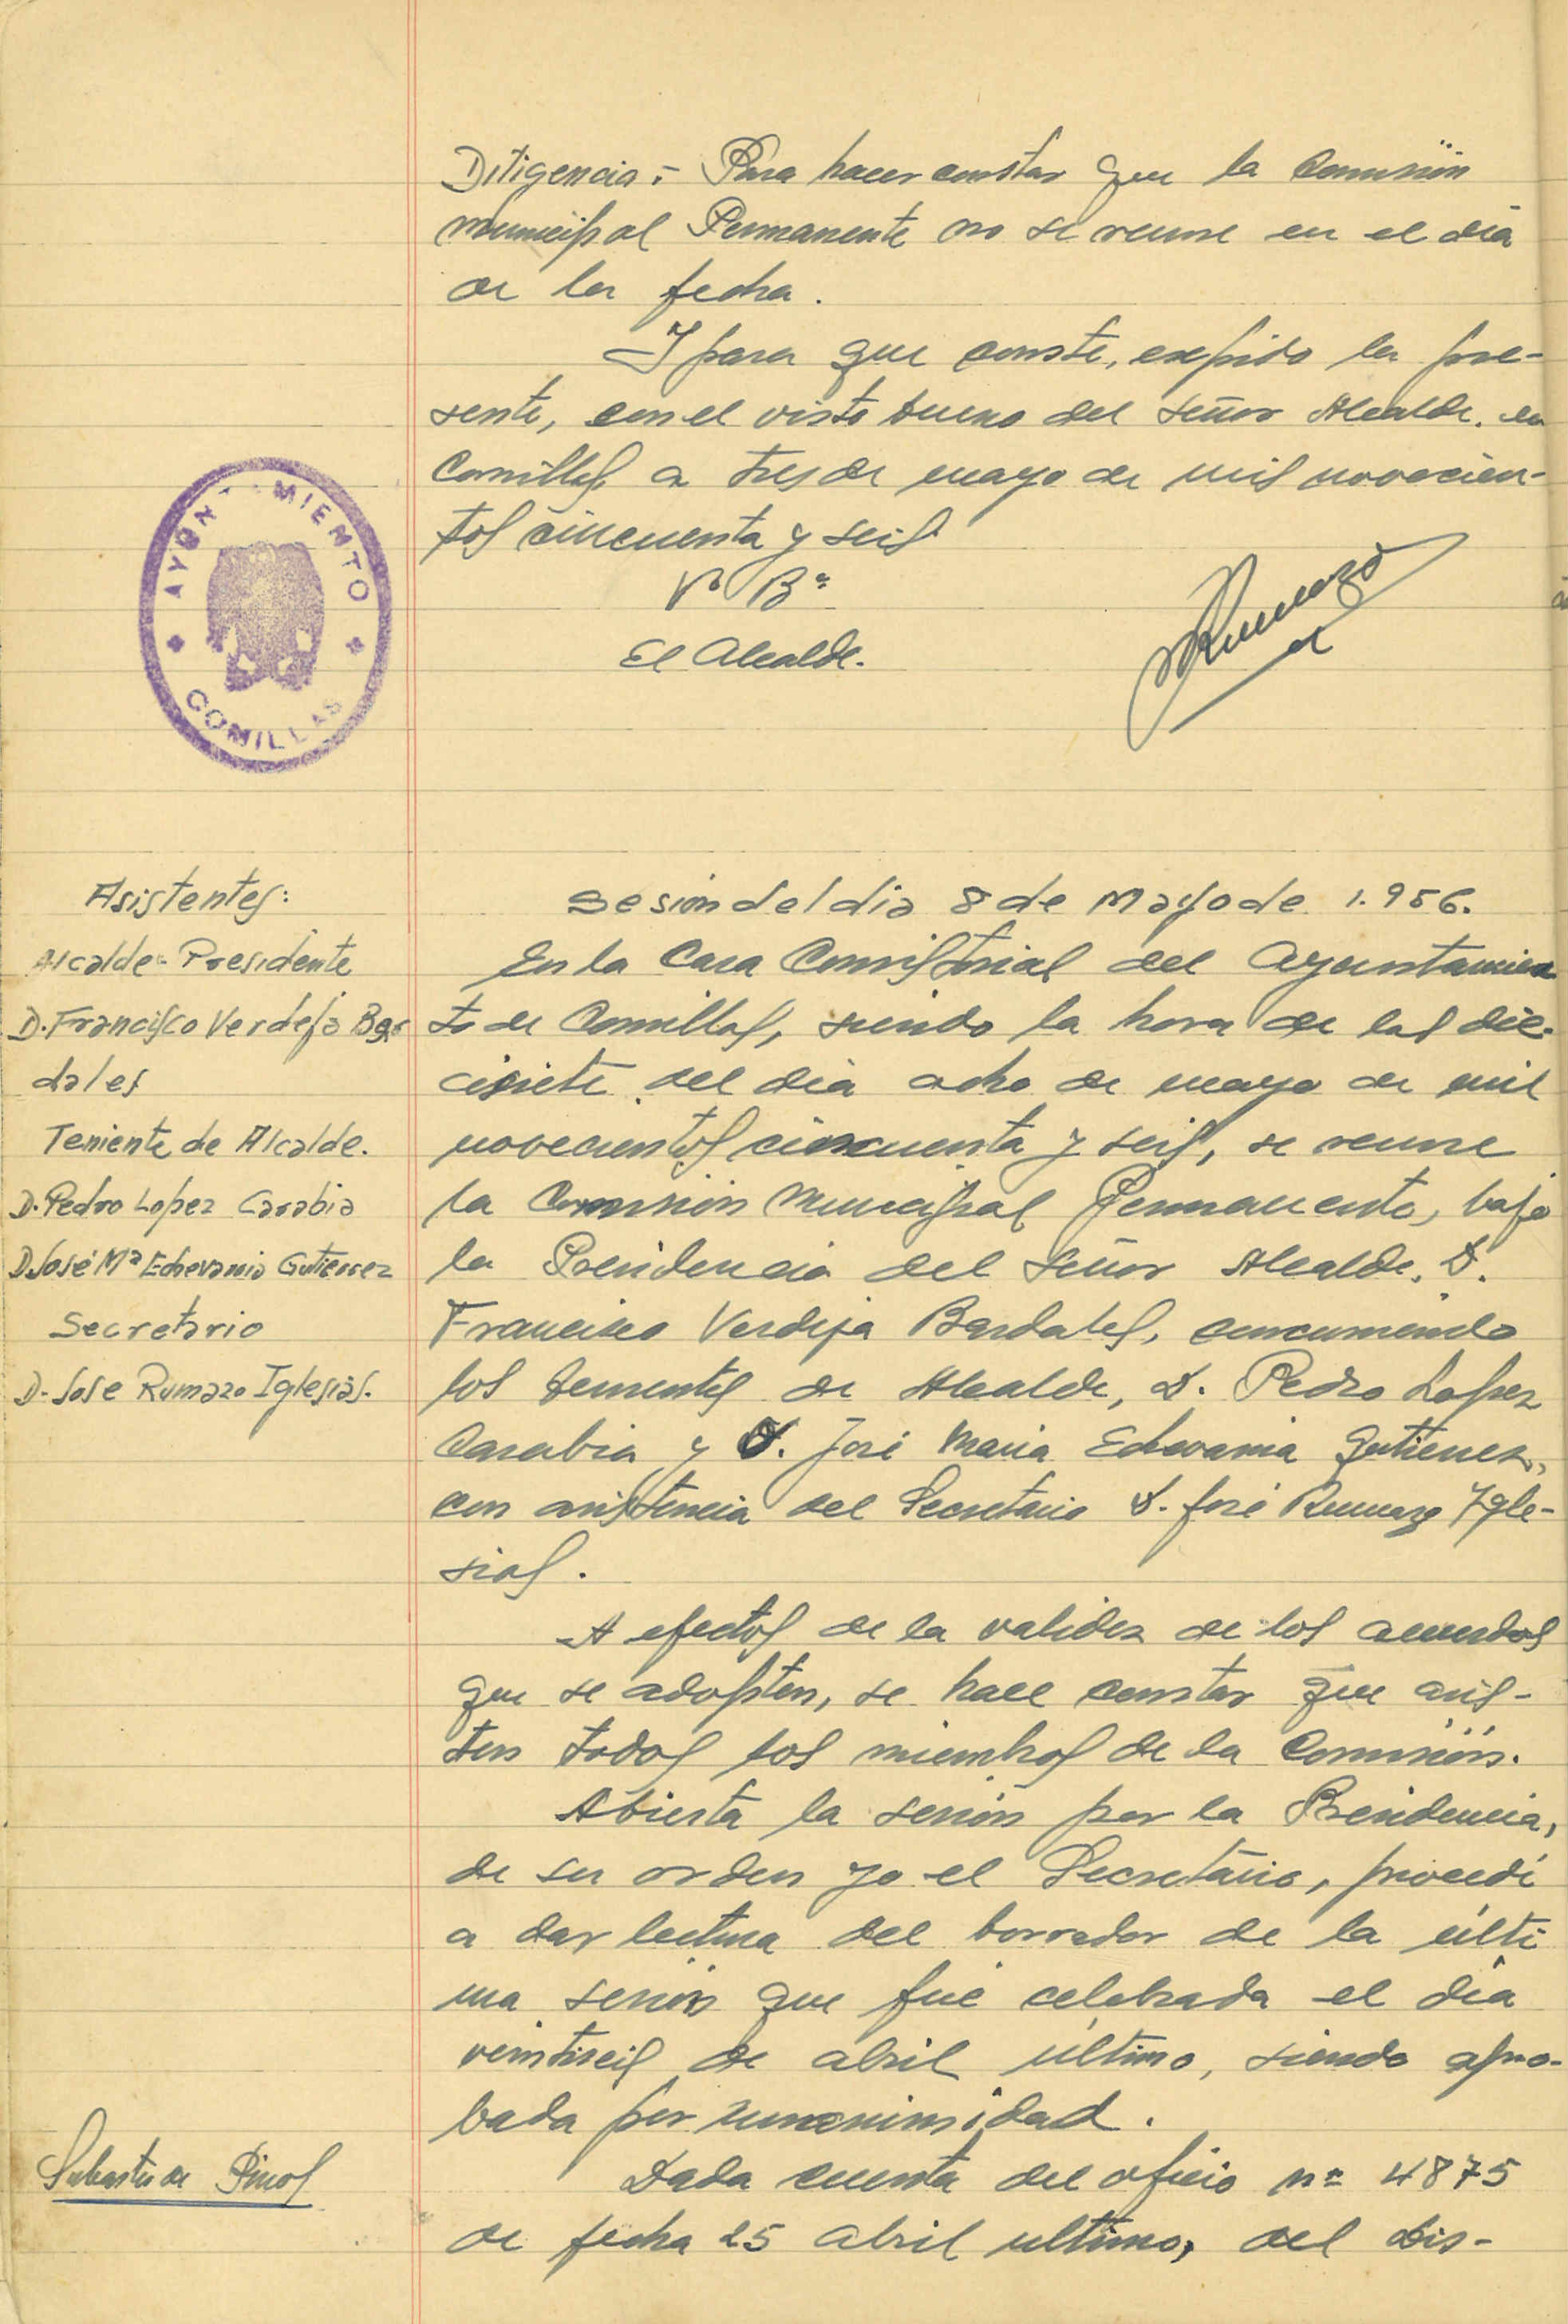 Diligencia.- Para hacer constar que la Comisión
municipal Permanente no se reune en el dia
de la fecha.
Y para que conste, expido la pre-
sente, con el visto bueno del Señor Alcalde, en
Comillas a tres de mayo de mil novecien-
tos cincuenta y seis
Vº Bº
El Alcalde.
JRumazo
AYUNTAMIENTO
COMILLAS
Asistentes:
Alcalde-Presidente
D. Francisco Verdeja Bar
dales
Teniente de Alcalde.
D. Pedro Lopez Carabia
D. José Mª Echevarria Gutierrez
Secretario
D. Jose Rumazo Iglesias.
Sesión del dia 8 de Mayo de 1.956.
En la Casa Consistorial del Ayuntamien
to de Comillas, siendo la hora de las die-
cisiete del dia ocho de mayo de mil
novecientos cincuenta y seis, se reune
la Comisión Municipal Permanente, bajo
la Presidencia del Señor Alcalde, D.
Francisco Verdeja Bardales, concurriendo
los tenientes de Alcalde, D. Pedro Lopez
Carabia y D. José Maria Echevarria Gutierrez,
con asistencia del Secretario D. José Rumazo Ygle-
sias.
A efectos de la validez de los acuerdos
que se adopten, se hace constar que asis-
ten todos los miembros de la Comisión.
Abierta la sesión por la Presidencia,
de su orden yo el Secretario, procedí
a dar lectura del borrador de la últi
ma sesión que fué celebrada el día
veintiseis de abril último, siendo apro-
bada por unanimidad.
Subasta de Pinos
Dada cuenta del oficio nº 4875
de fecha 25 abril ultimo, del Dis-